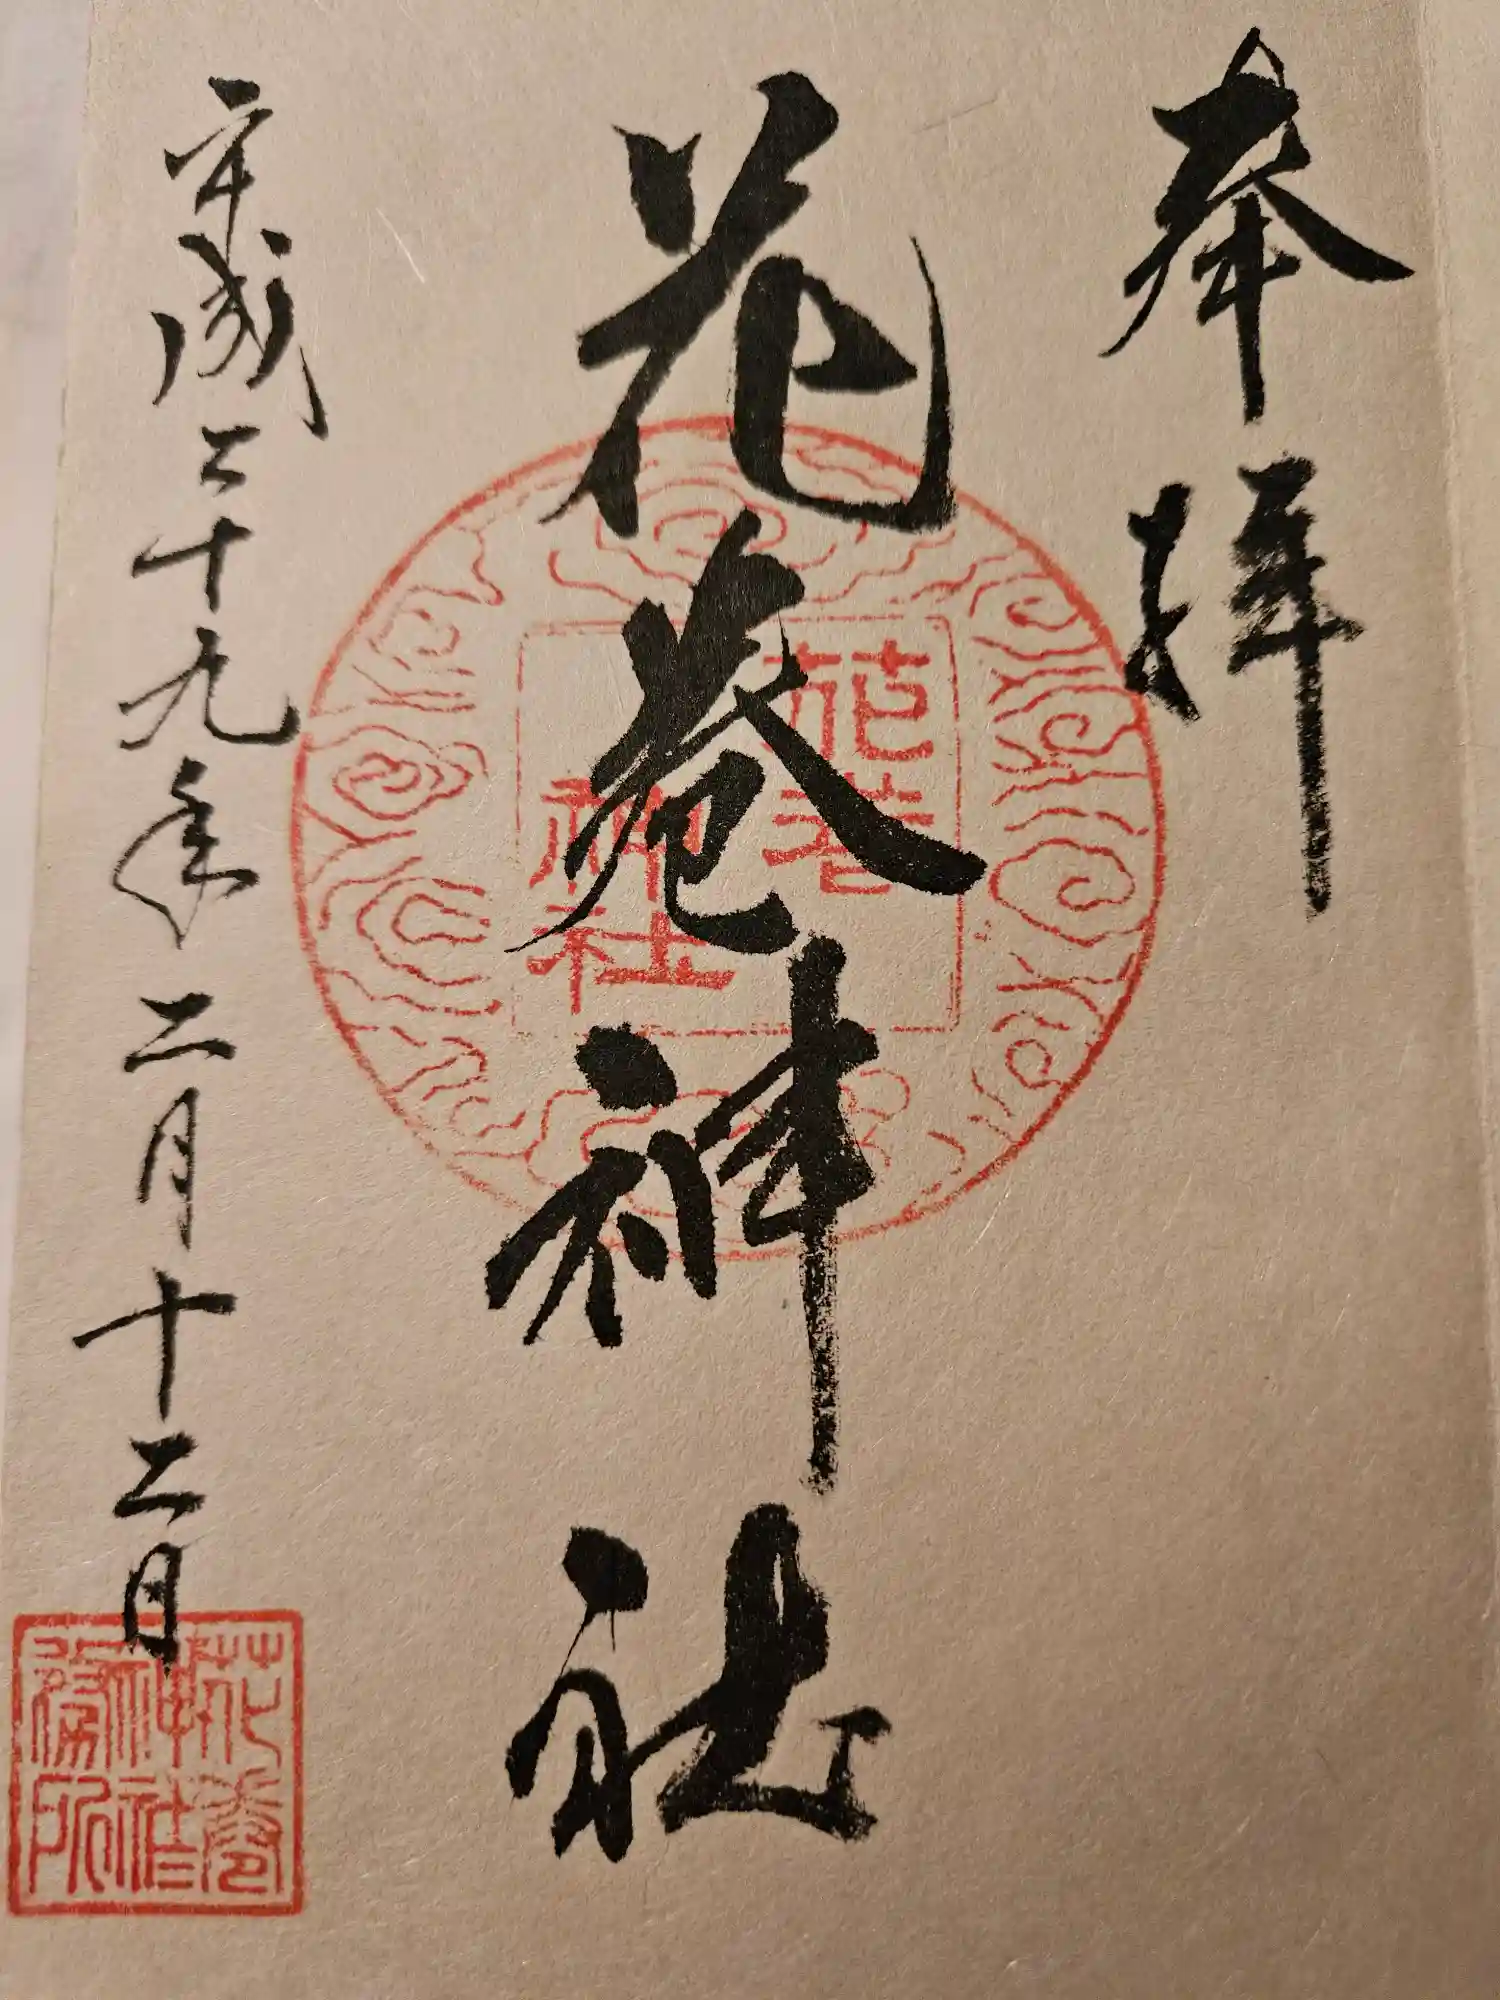 奉拝
花巻神社
花巻
神社
平成二十九年二月十二日
花巻
神社
務所